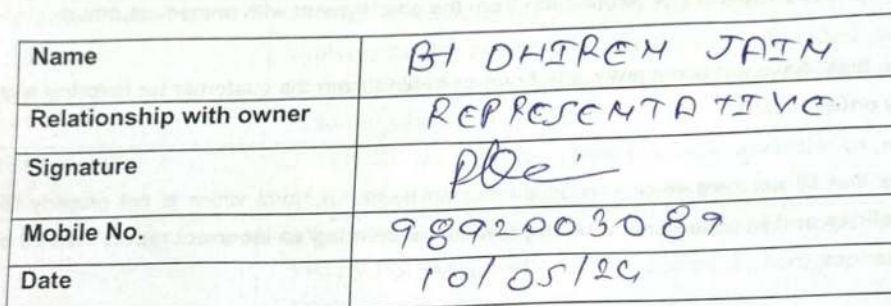 Name BH DHIREN JAIN
Relationship with owner REPRESENTATIVE
Signature
Mobile No. 9892003089
Date 10/05/24